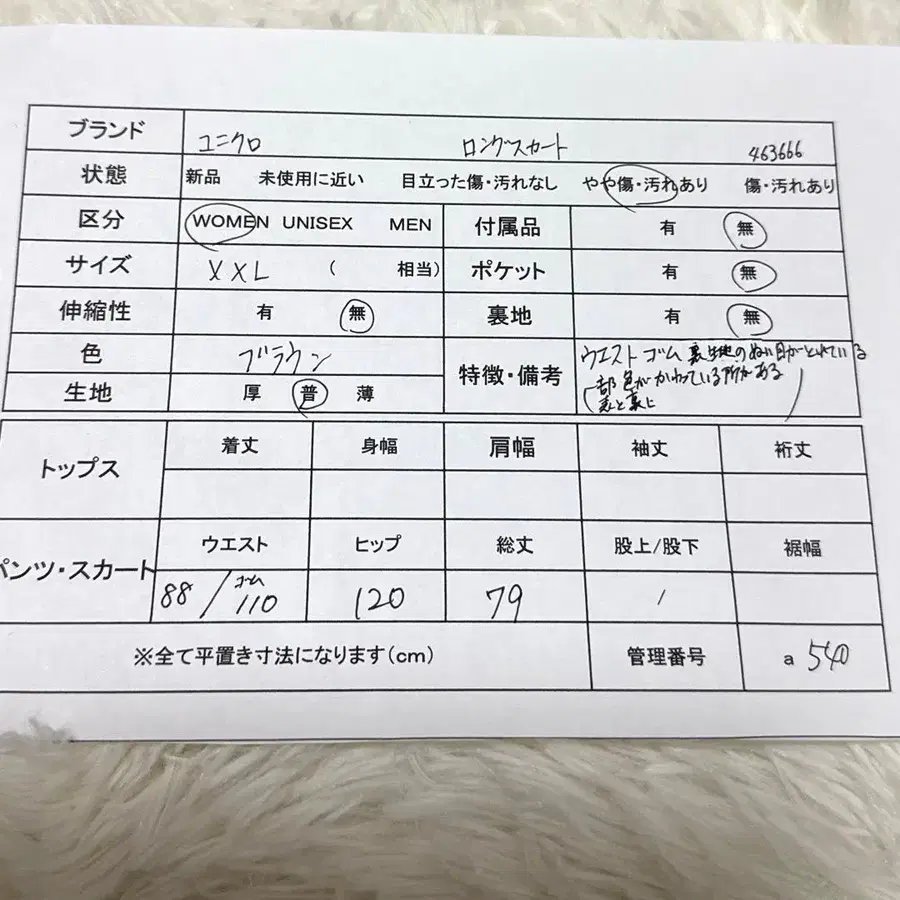 ブランド ユニクロ ロングスカート 463666
状態 新品 未使用に近い 目立った傷・汚れなし やや傷・汚れあり 傷・汚れあり
区分 WOMEN UNISEX MEN 付属品 有 無
サイズ XXL ( 相当) ポケット 有 無
伸縮性 有 無 裏地 有 無
色 ブラウン 特徴・備考 ウエストゴム 裏生地のぬい目がとれている
部 色がかわっている所がある
表と裏に
生地 厚 普 薄
トップス 着丈 身幅 肩幅 袖丈 裄丈
パンツ・スカート ウエスト ヒップ 総丈 股上/股下 裾幅
88 / ゴム 110 120 79 /
※全て平置き寸法になります(cm) 管理番号 a 540